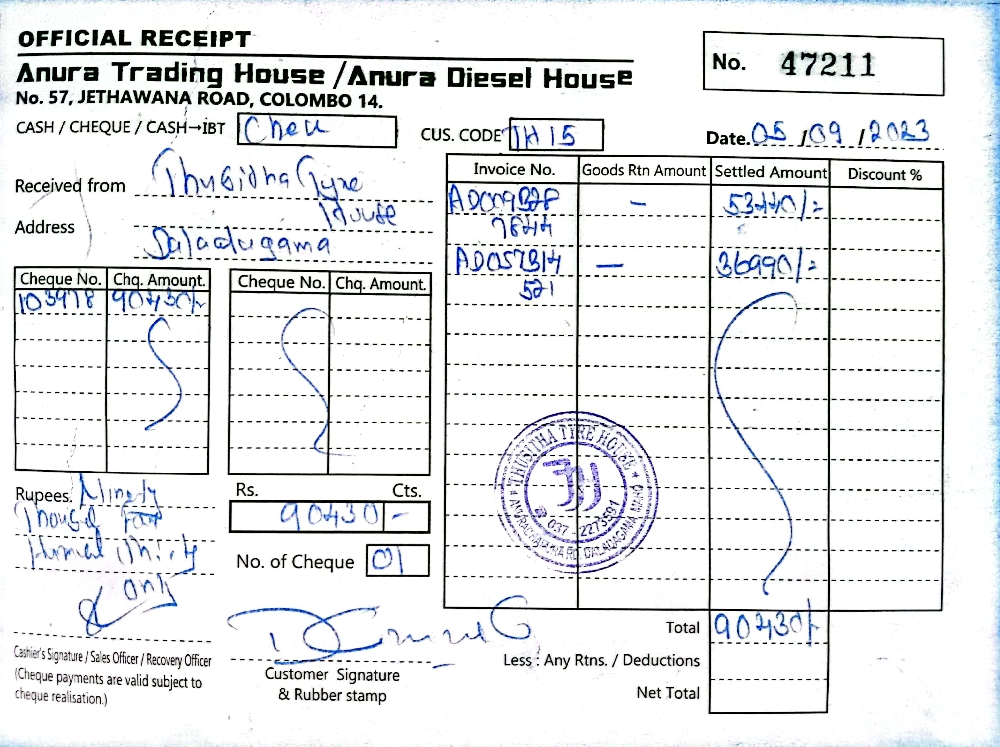 OFFICIAL RECEIPT
Anura Trading House / Anura Diesel House
No. 57, JETHAWANA ROAD, COLOMBO 14.
No. 47211
CASH / CHEQUE / CASH→IBT
CUS. CODE TH 15
Date. 05 / 09 / 2023
Received from Thusidha Tyre
House
Address
Daladugama
Invoice No. Goods Rtn Amount Settled Amount Discount %
– 53440/=
7844
AD057314 — 36990/=
521
Cheque No. Chq. Amount. Cheque No. Chq. Amount.
103978 90430/-
Rupees. Ninety
Thirty
only
Rs. Cts.
90430 –
No. of Cheque 01
THUSITHA TIRE HOUSE
037 2273591
Total 90430/-
Less : Any Rtns. / Deductions
Net Total
Cashier's Signature / Sales Officer / Recovery Officer
(Cheque payments are valid subject to
cheque realisation.)
Customer Signature
& Rubber stamp